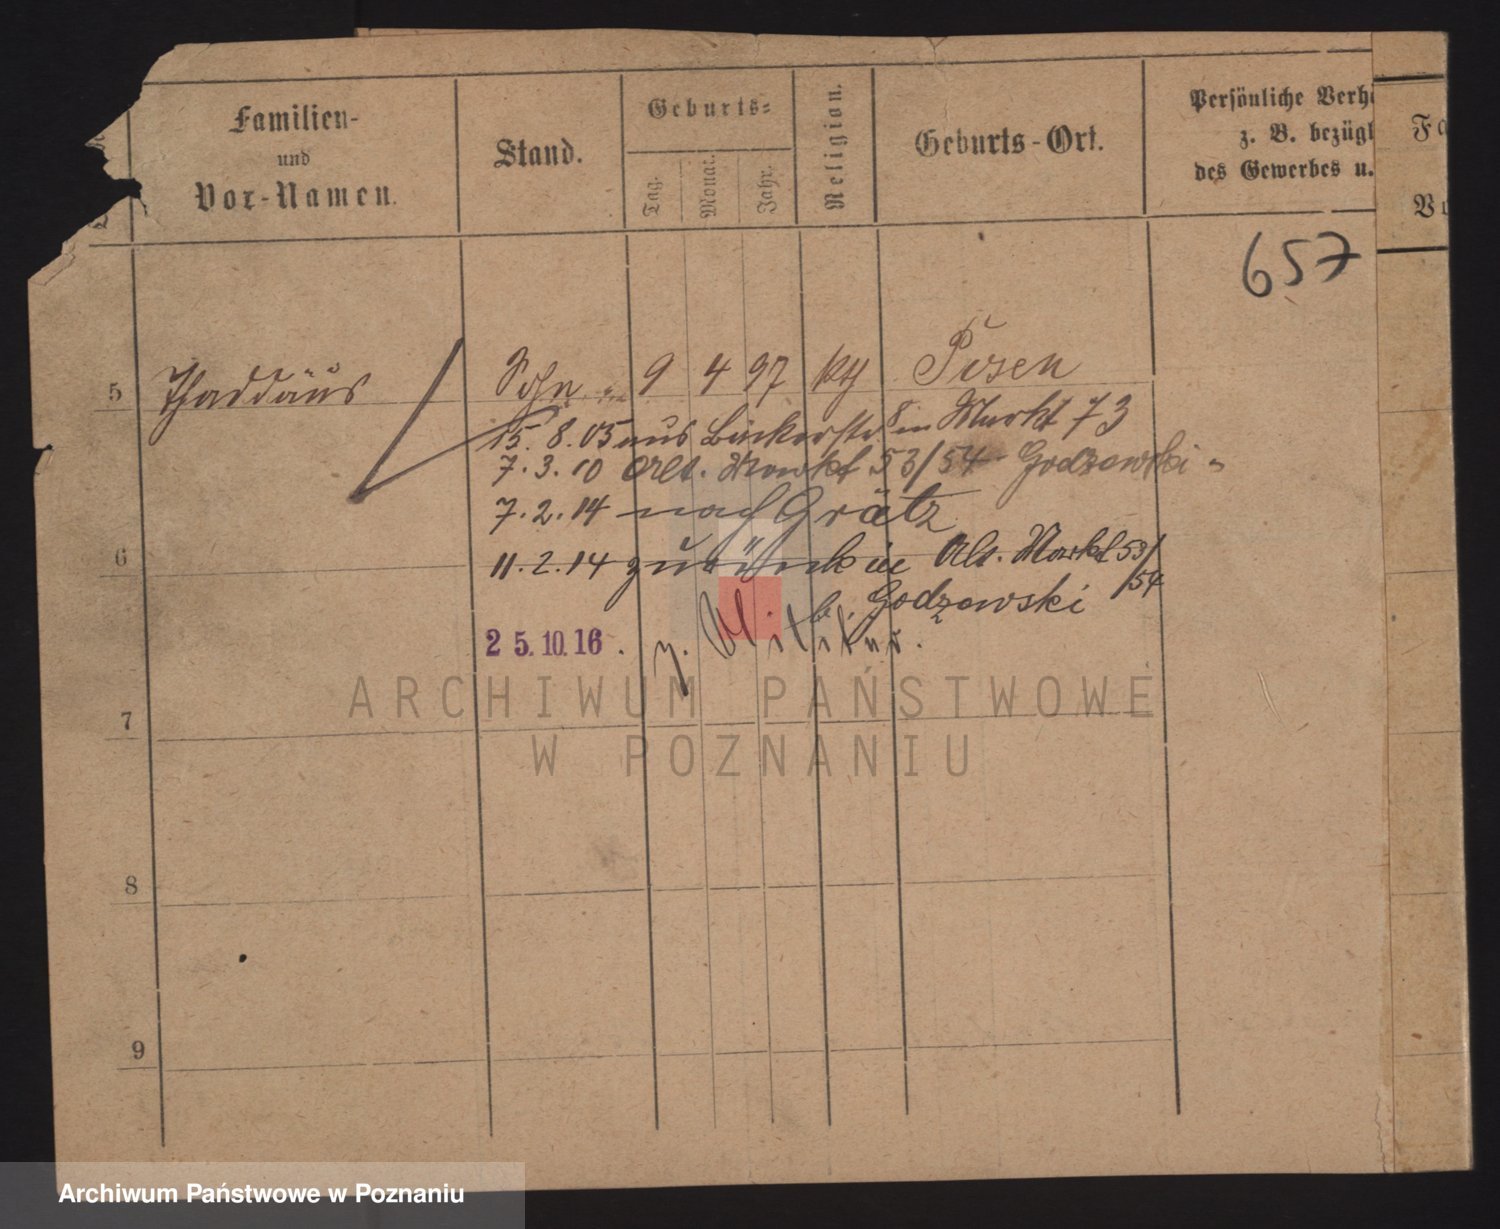 Familien-
und
Vor-Namen.
Stand.
Geburts-
Tag.
Monat.
Jahr.
Religion.
Geburts-Ort.
Persönliche Verh
z. B. bezügl
des Gewerbes u.
Fa
Vo
657
5 Thaddäus Sohn 9 4 97 kth Posen
15. 8. 05 aus Bäckerstr. 8 in Markt 73
7. 3. 10 Alt. Markt 53/54 Godzewski
6
7. 2. 14 nach Grätz
11. 2. 14 zurück in Alt. Markt 53/54
b. Godzewski
25.10.16. z. Militär.
7
8
9
ARCHIWUM PAŃSTWOWE
W POZNANIU
Archiwum Państwowe w Poznaniu